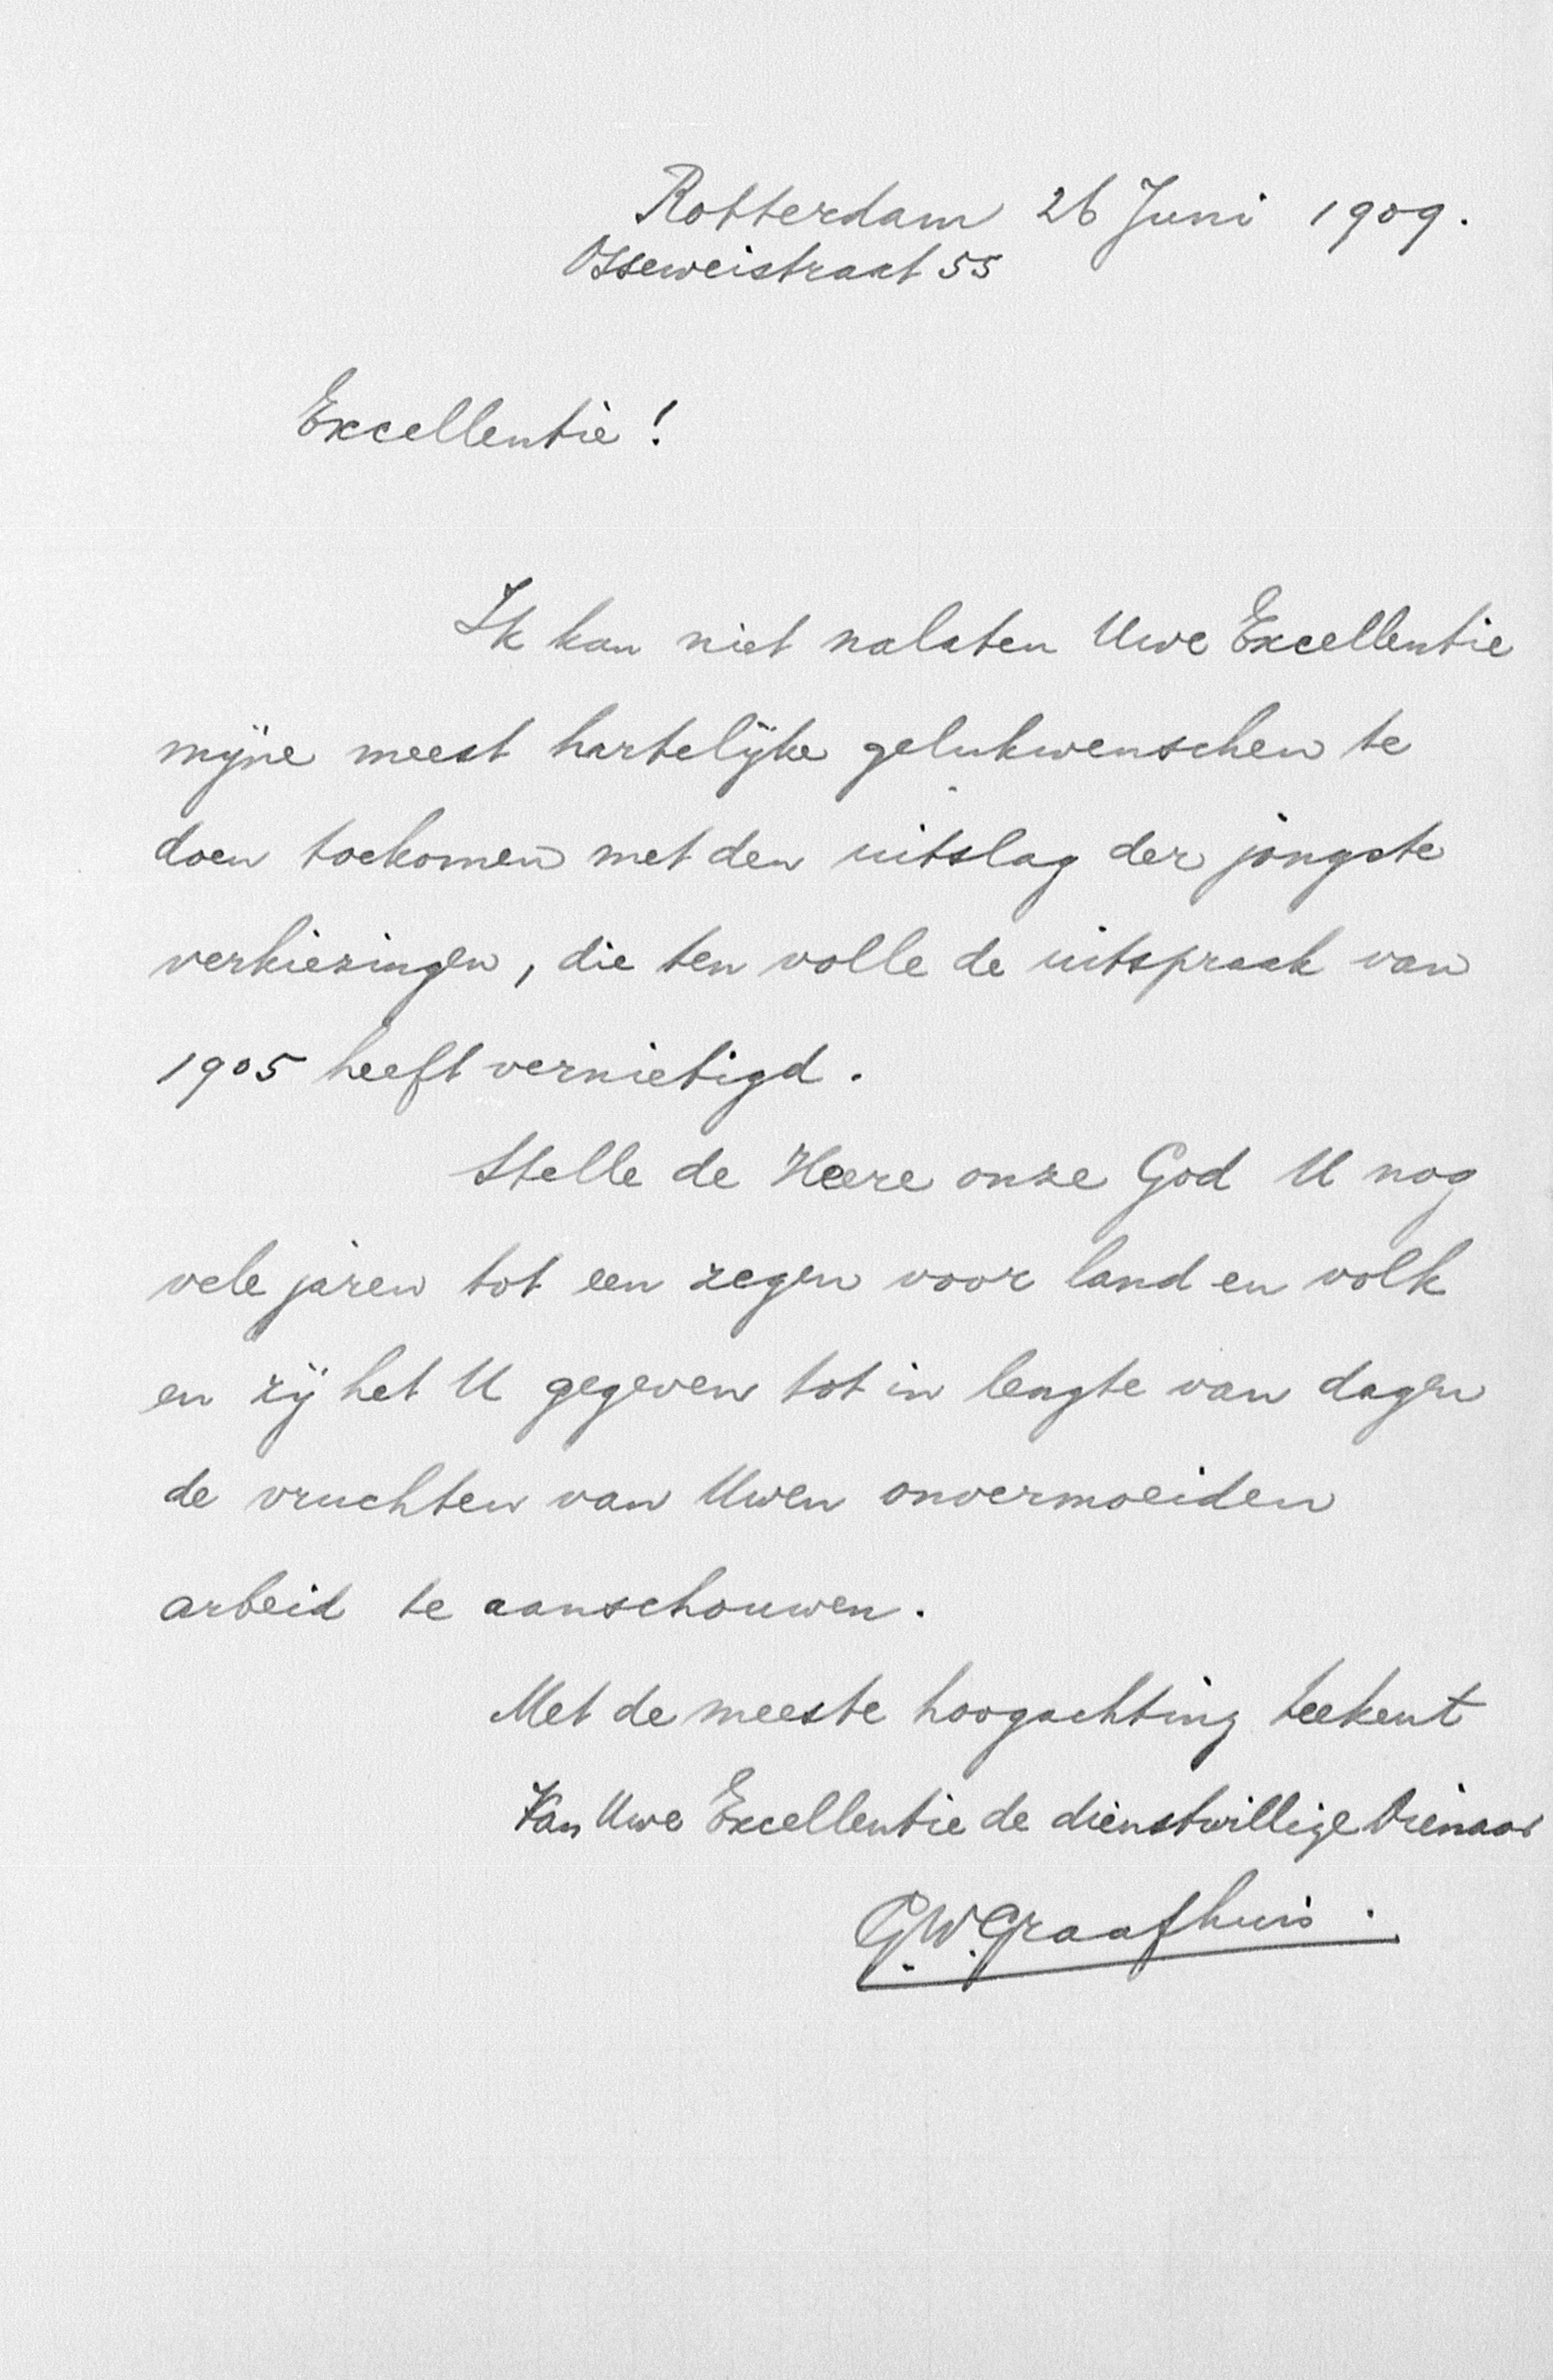 Rotterdam 26 Juni 1909.
Osseweistraat 55
Excellentie!
Ik kan niet nalaten Uwe Excellentie
mijne meest hartelijke gelukwenschen te
doen toekomen met den uitslag der jongste
verkiezingen, die ten volle de uitspraak van
1905 heeft vernietigd.
Stelle de Heere onze God U nog
vele jaren tot een zegen voor land en volk
en zij het U gegeven tot in lengte van dagen
de vruchten van Uwen onvermoeiden
arbeid te aanschouwen.
Met de meeste hoogachting teekent
Van Uwe Excellentie de dienstwillige Dienaar
G.W. Graafhuis.